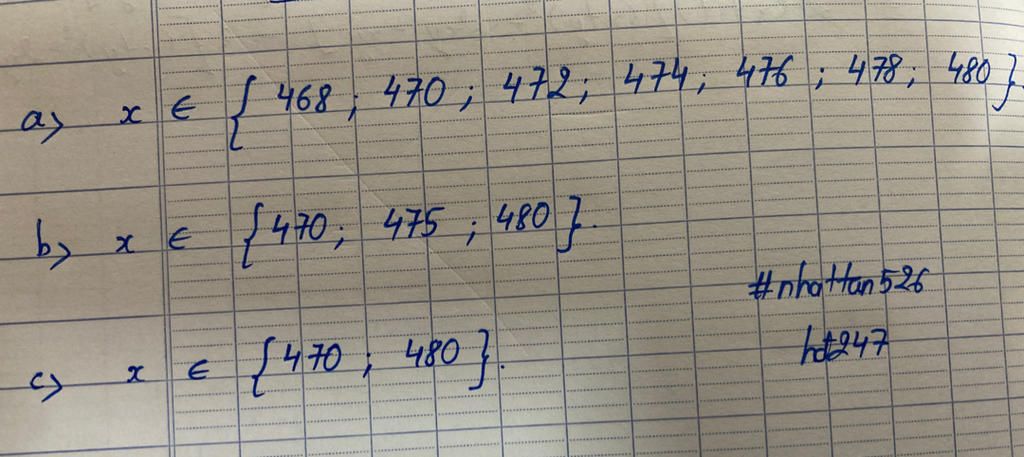 a) x ∈ { 468 ; 470 ; 472 ; 474 ; 476 ; 478 ; 480 }.
b) x ∈ { 470 ; 475 ; 480 }.
#nhattan526
c) x ∈ { 470 ; 480 }.
hd247